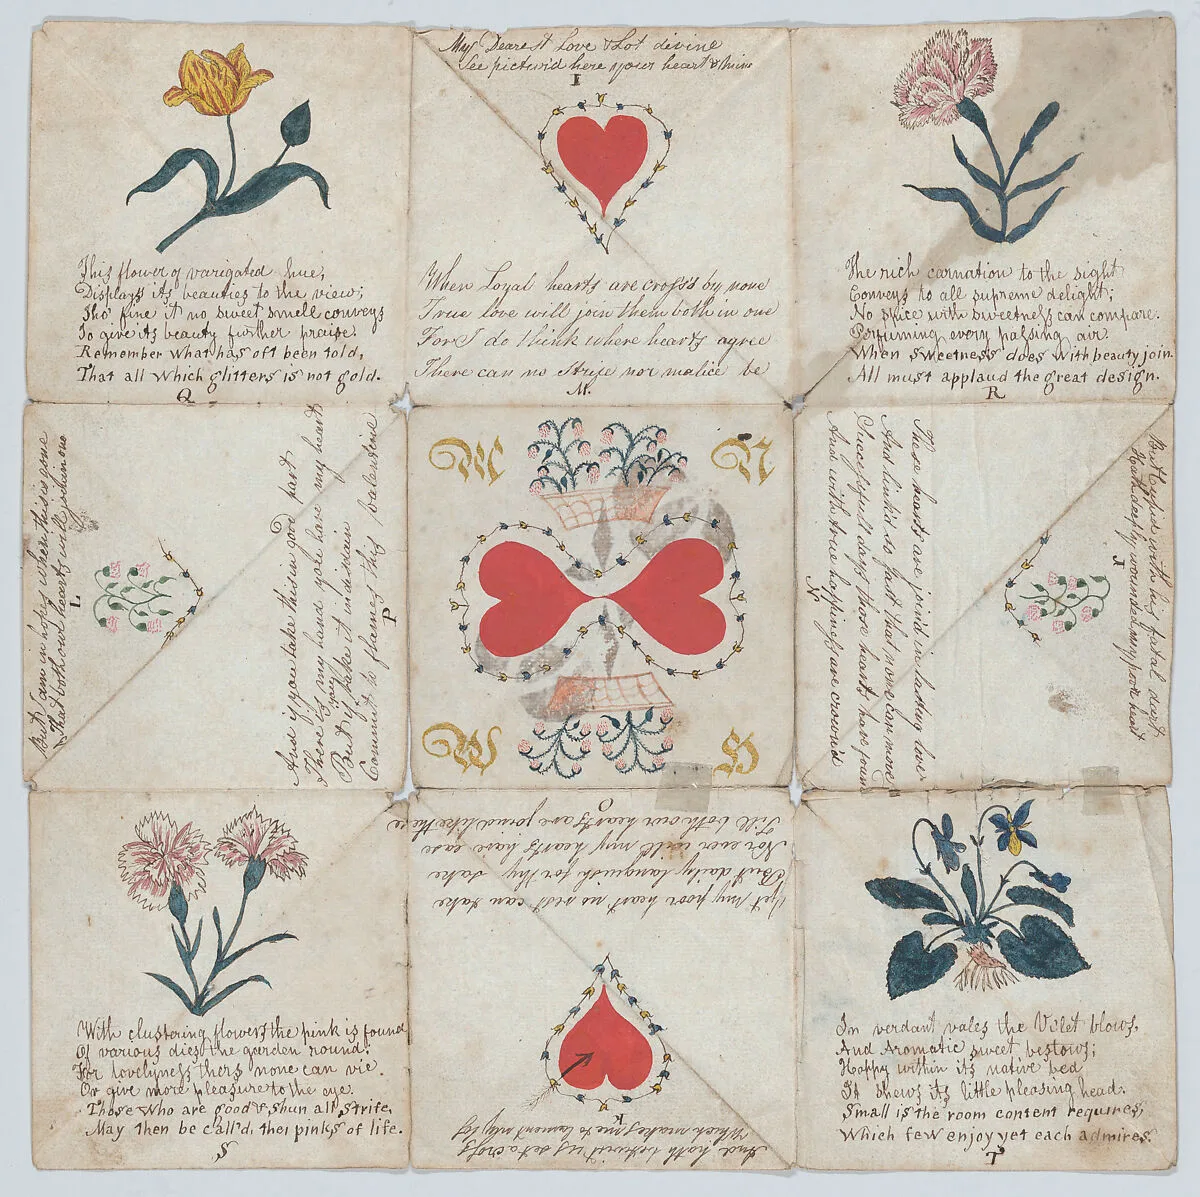 My Dearest Love & Lot divine
See pictur'd here your heart & mine
I
This flower of varigated hue,
Displays its beauties to the view;
Tho' fine it no sweet smell conveys
To give its beauty further praise.
Remember what has oft been told,
That all which glitters is not gold.
Q
When Loyal hearts are cross'd by none
True love will join them both in one
For I do think where hearts agree
There can no Strife nor malice be
M.
The rich carnation to the sight
Conveys to all supreme delight;
No spice with sweetness can compare.
Perfuming every passing air.
When sweetness does with beauty join.
All must applaud the great design.
R
But I am in hopes when this is gone
That both our hearts will join in one
L
And if you take this in good part
There is my hand you have my heart
But if you take it in disdain
Commit to flames this valentine
P
M
N
W
H
These hearts are join'd in lasting love
And link'd to fast that none can move
Successfull days those hearts have found
And with true happiness are crown'd
N
But Cupid with his fatal dart
Hath deeply wounded my poor heart
J
With clustering flowers the pink is found
Of various dies the garden round.
For lovelyness thers none can vie.
Or give more pleasure to the eye.
Those who are good & shun all Strife,
May then be call'd thei pinks of life.
S
Yet my poor heart no rest can take
But daily languish for thy sake
Nor ever will my hearts have ease
Till both our hearts are joined like these
O
And hath betwixt us set a cross
Which makes me to lament my los
K
In verdant vales the Vilet blows,
And Aromatic sweet bestows;
Happy within its native bed
It shews its little pleasing head.
Small is the room content requires,
Which few enjoy yet each admires.
T